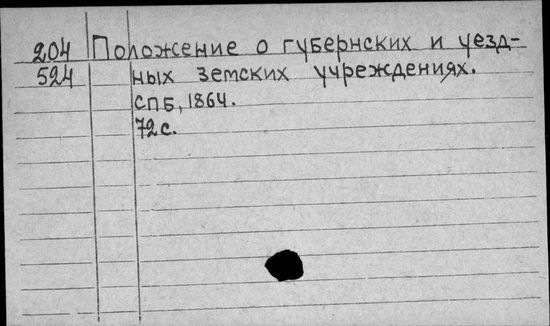 204 Положение о губернских и уезд-
524 ных земских учреждениях.
СПБ, 1864.
72 с.